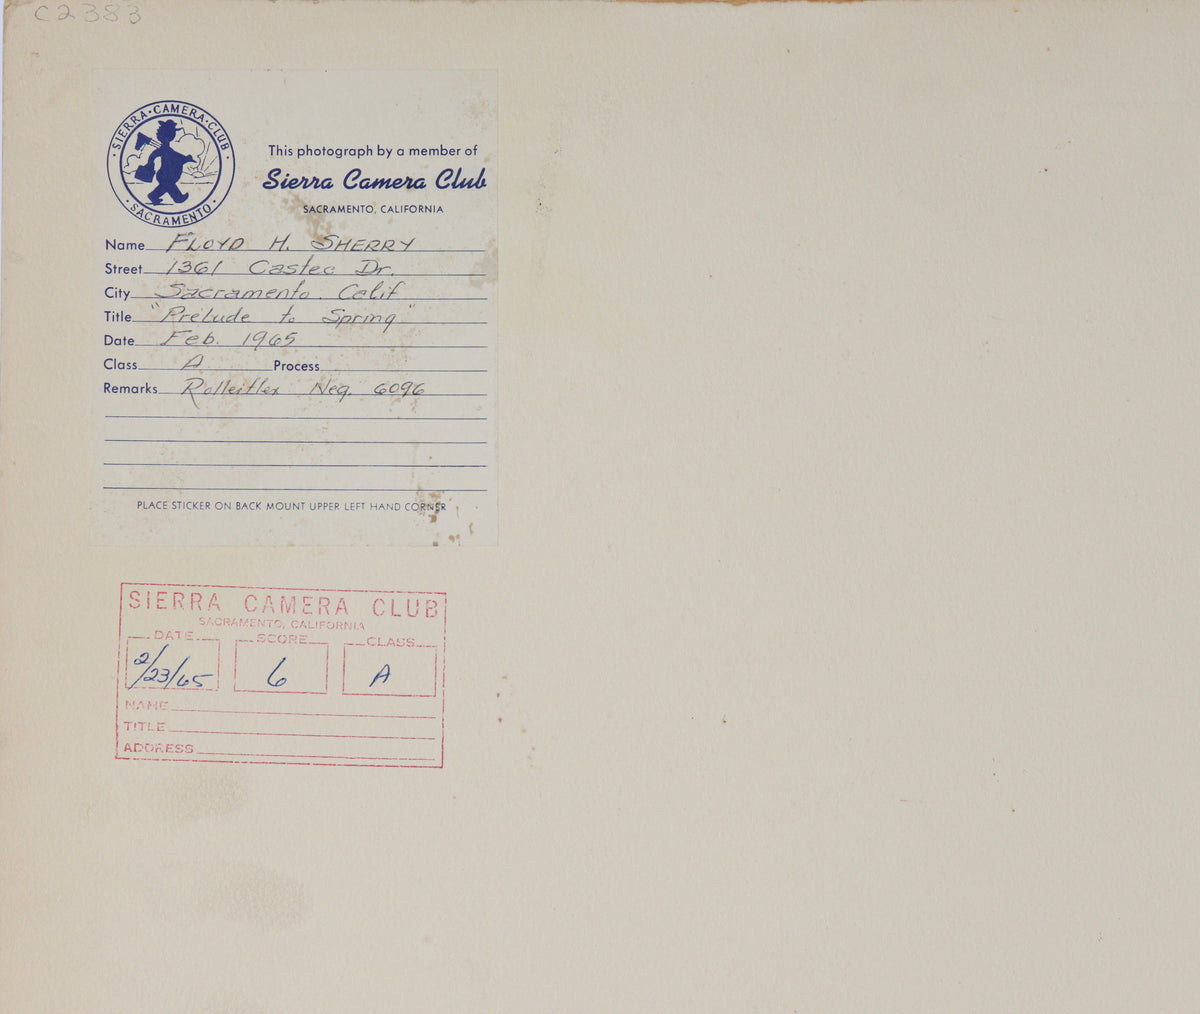 C2383
SIERRA · CAMERA · CLUB
· SACRAMENTO ·
This photograph by a member of
Sierra Camera Club
SACRAMENTO, CALIFORNIA
Name FLOYD H. SHERRY
Street 1361 Castec Dr.
City Sacramento Calif
Title "Prelude to Spring"
Date Feb. 1965
Class A Process
Remarks Rolleiflex Neg. 6096
PLACE STICKER ON BACK MOUNT UPPER LEFT HAND CORNER
SIERRA CAMERA CLUB
SACRAMENTO, CALIFORNIA
DATE SCORE CLASS
2/23/65 6 A
NAME
TITLE
ADDRESS